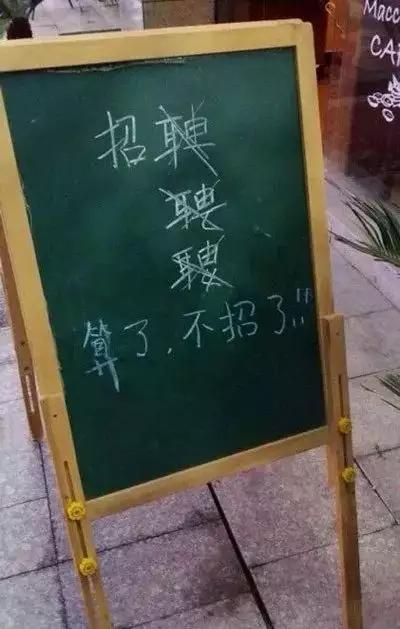 招聘
聘
聘
算了,不招了!!!
Macc
CAF